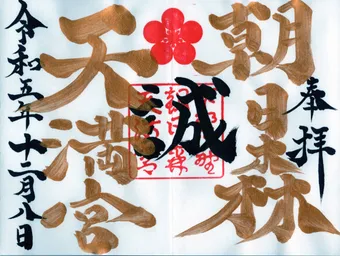 奉拝
朝日森
天満宮
誠
令和五年十二月八日